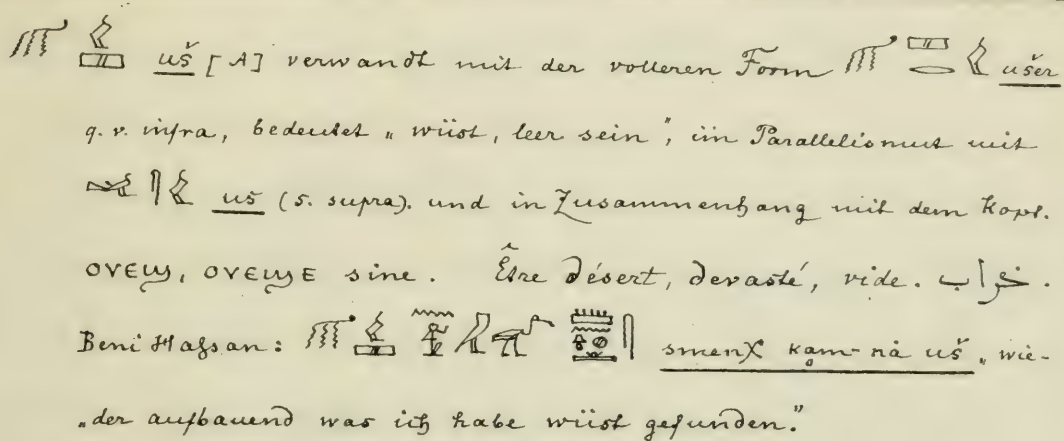 uš [A] verwandt mit der volleren Form ušer
q. v. infra, bedeutet „wüst, leer sein", im Parallelismus mit
us (s. supra). und in Zusammenhang mit dem Kopt.
ⲟⲩⲉϣ, ⲟⲩⲉϣⲉ sine. Être désert, devasté, vide. خراب.
Beni Hassan: smenχ ḳam-nȧ uš „wie-
„der aufbauend was ich habe wüst gefunden."